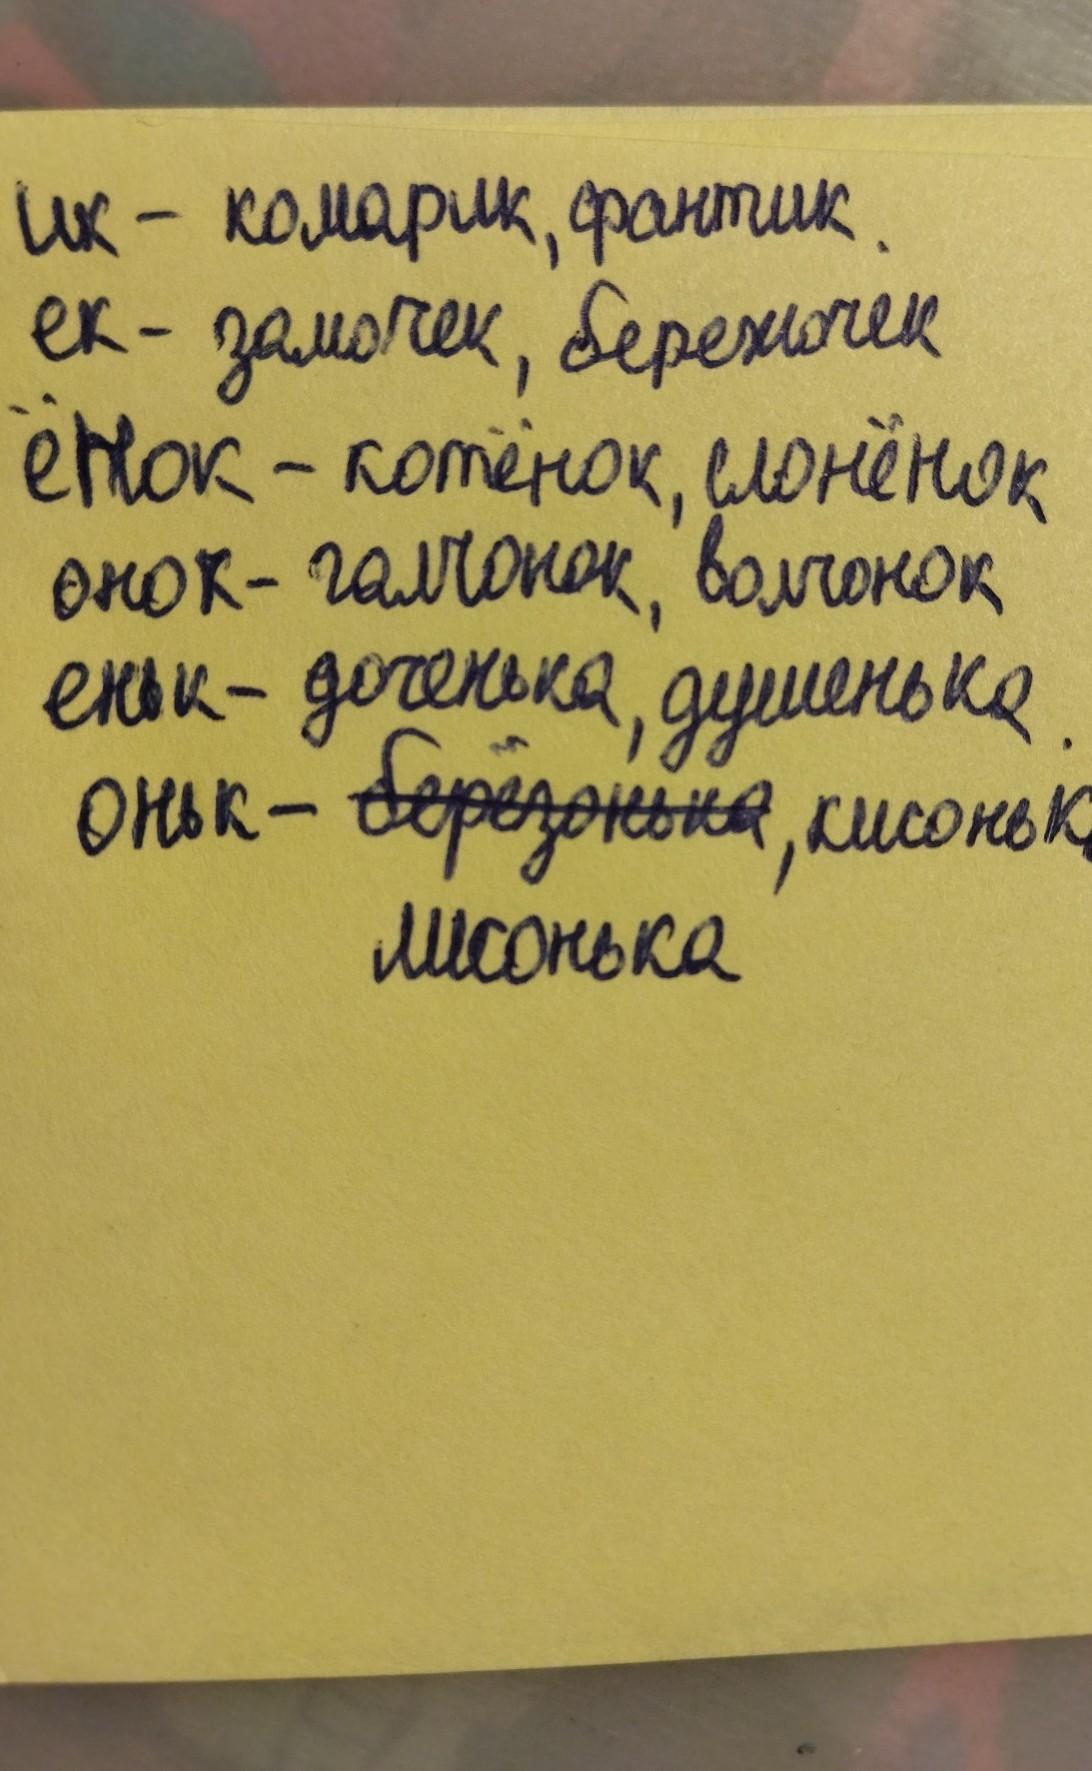 ик - комарик, фантик.
ек - замочек, бережочек
ёнок - котёнок, слонёнок
онок - галчонок, волчонок
еньк - доченька, душенька.
оньк - берёзонька, кисонька
лисонька